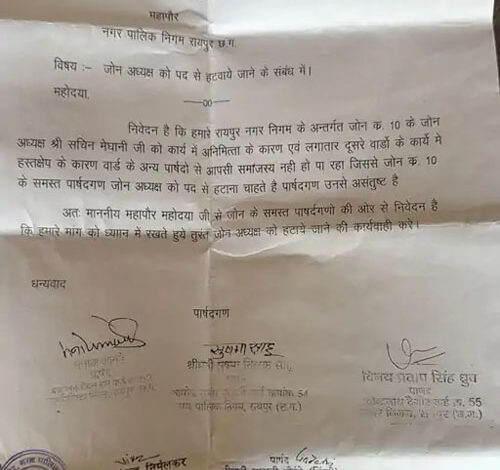 महापौर
नगर पालिक निगम रायपुर छ.ग.
विषय :- जोन अध्यक्ष को पद से हटवाये जाने के संबंध में।
महोदया,
—00—
निवेदन है कि हमारे रायपुर नगर निगम के अन्तर्गत जोन क. 10 के जोन
अध्यक्ष श्री सचिन मेघानी जी को कार्य में अनिमित्ता के कारण एवं लगातार दूसरे वार्डो के कार्य मे
हस्तक्षेप के कारण वार्ड के अन्य पार्षदो से आपसी समांजस्य नही हो पा रहा जिससे जोन क. 10
के समस्त पार्षदगण जोन अध्यक्ष को पद से हटाना चाहते है पार्षदगण उनसे असंतुष्ट है
अतः माननीय महापौर महोदया जी से जोन के समस्त पार्षर्दगणो की ओर से निवेदन है
कि हमारे मांग को ध्याान में रखते हुये तुरन्त जोन अध्यक्ष को हटाये जाने की कार्यवाही करे।
धन्यवाद
पार्षदगण
सुषमा साहू
पार्षद
श्रीमती
साहू
54
पालिक निगम, रायपुर (छ.ग.)
विजय प्रताप सिंह ध्रुव
पार्षद
वार्ड क्र. 55
निगम, रायपुर (छ.ग.)
निर्मलकर
पार्षद